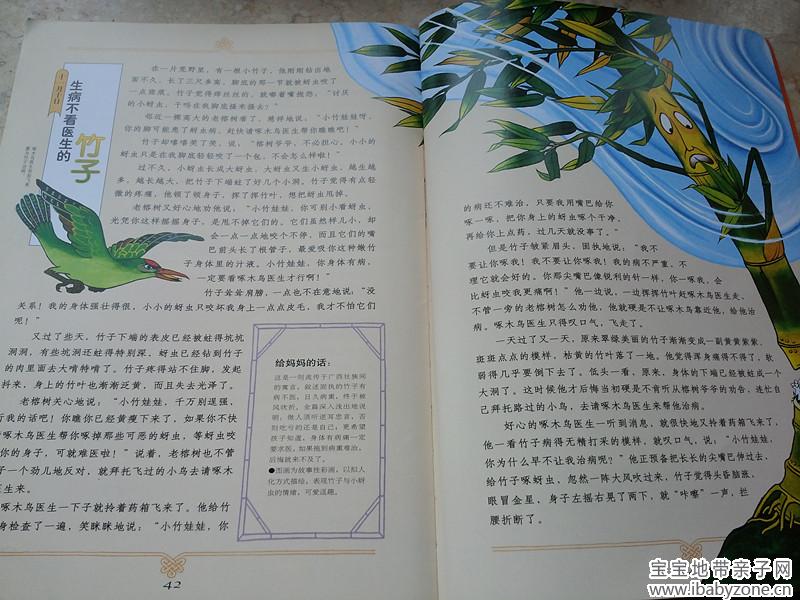 十一月十一日
生病不看医生的
竹子
在一片荒野里，有一根小竹子，他刚刚钻出地
面不久，长了三尺多高，脚底的那一节就被蚜虫咬了
一点斑痕。竹子觉得痒丝丝的，就嘟着嘴抱怨：“讨厌
的小蚜虫，干吗在我脚底搔来搔去？”
邻近一棵高大的老榕树看了，慈祥地说：“小竹娃娃呀，
你的脚可能患了蚜虫病，赶快请啄木鸟医生帮你瞧瞧吧！”
竹子却嘻嘻笑了笑，说：“榕树爷爷，不必担心，小小的
蚜虫只是在我脚底轻轻咬了一个包，不会怎么样啦！”
过不久，小蚜虫长成大蚜虫，大蚜虫又生小蚜虫，越生越
多，越长越大，把竹子下端蛀了好几个小洞。竹子觉得有点轻
微的疼痛，他顿了顿身子，挥了挥竹叶，想把蚜虫甩掉。
老榕树又好心地劝他说：“小竹娃娃，你可别小看蚜虫，
光凭你这样摇摇身子，是甩不掉它们的。它们虽然样儿小，却
会一点一点地咬个不停，而且它们的嘴
巴前头长了根管子，最爱吸你这种嫩竹
子身体里的汁液。小竹娃娃，你身体有病，
一定要看啄木鸟医生才行啊！”
竹子耸耸肩膀，一点也不在意地说：“没
关系！我的身体强壮得很，小小的蚜虫只咬坏我身上一点点皮毛，我才不怕它们
呢！”
又过了些天，竹子下端的表皮已经被蛀得坑坑
洞洞，有些坑洞还蛀得特别深，蚜虫已经钻到竹子
的肉里面去大啃特啃了。竹子疼得站不住脚，发起
抖来，身上的竹叶也渐渐泛黄，而且失去光泽了。
老榕树关心地说：“小竹娃娃，千万别逞强，
行我的话吧！你瞧你已经黄瘦下来了，如果你不快
啄木鸟医生帮你啄掉那些可恶的蚜虫，等蚜虫咬
你的身子，可就难医啦！”说着，老榕树也不管
子一个劲儿地反对，就拜托飞过的小鸟去请啄木
医生来。
啄木鸟医生一下子就拎着药箱飞来了。他给竹
身检查了一遍，笑眯眯地说：“小竹娃娃，你
给妈妈的话：
这是一则流传于广西壮族间
的寓言，叙述固执的竹子有
病不医，日久病重，终于被
风吹折。全篇深入浅出地说
明：做人须听逆耳忠言，否
则吃亏的还是自己；更希望
孩子知道，身体有病痛一定
要求医，如果拖到病重难治，
后悔就来不及了。
●图画为故事性彩画，以拟人
化方式描绘，表现竹子与小蚜
虫的情绪，可爱逗趣。
42
的病还不难治，只要我用嘴巴给你
啄一啄，把你身上的蚜虫啄个干净，
再给你上点药，过几天就没事了。”
但是竹子皱紧眉头，固执地说：“我不
要让你啄我！我不要让你啄我！我的病不严重，不
理它就会好的。你那尖嘴巴像锐利的针一样，你一啄我，会
比蚜虫咬我更痛啊！”他一边说，一边挥挥竹叶赶啄木鸟医生走，
不管一旁的老榕树怎么劝他，他就硬是不让啄木鸟靠近他，给他治
病。啄木鸟医生只得叹口气，飞走了。
一天过了又一天，原来翠绿美丽的竹子渐渐变成一副黄黄紫紫、
斑斑点点的模样，枯黄的竹叶落了一地。他觉得浑身痛得不得了，软
弱得几乎要倒下去了。低头一看，原来，身体的下端已经被蛀成一个
大洞了。这时候他才后悔当初硬是不肯听从榕树爷爷的劝告，连忙自
己拜托路过的小鸟，去请啄木鸟医生来帮他治病。
好心的啄木鸟医生一听到消息，就很快地又拎着药箱飞来了，
他一看竹子病得无精打采的模样，就叹口气，说：“小竹娃娃，
你为什么早不让我治病呢？”他正预备把长长的尖嘴巴伸过去，
给竹子啄蚜虫，忽然一阵大风吹过来，竹子觉得头昏脑涨，
眼冒金星，身子左摇右晃了两下，就“咔嚓”一声，拦
腰折断了。
宝宝地带亲子网
www.ibabyzone.cn